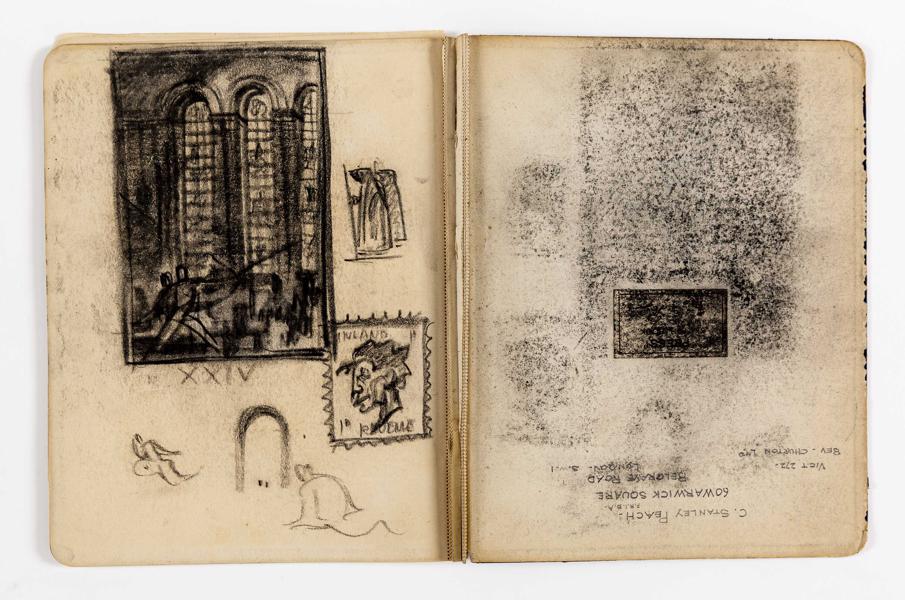 XXIV
INLAND
1D REVENUE
C. STANLEY PEACH.
F.R.I.B.A.
60 WARWICK SQUARE
BELGRAVE ROAD
LONDON. S.W.1
VICT 272.
PRESS